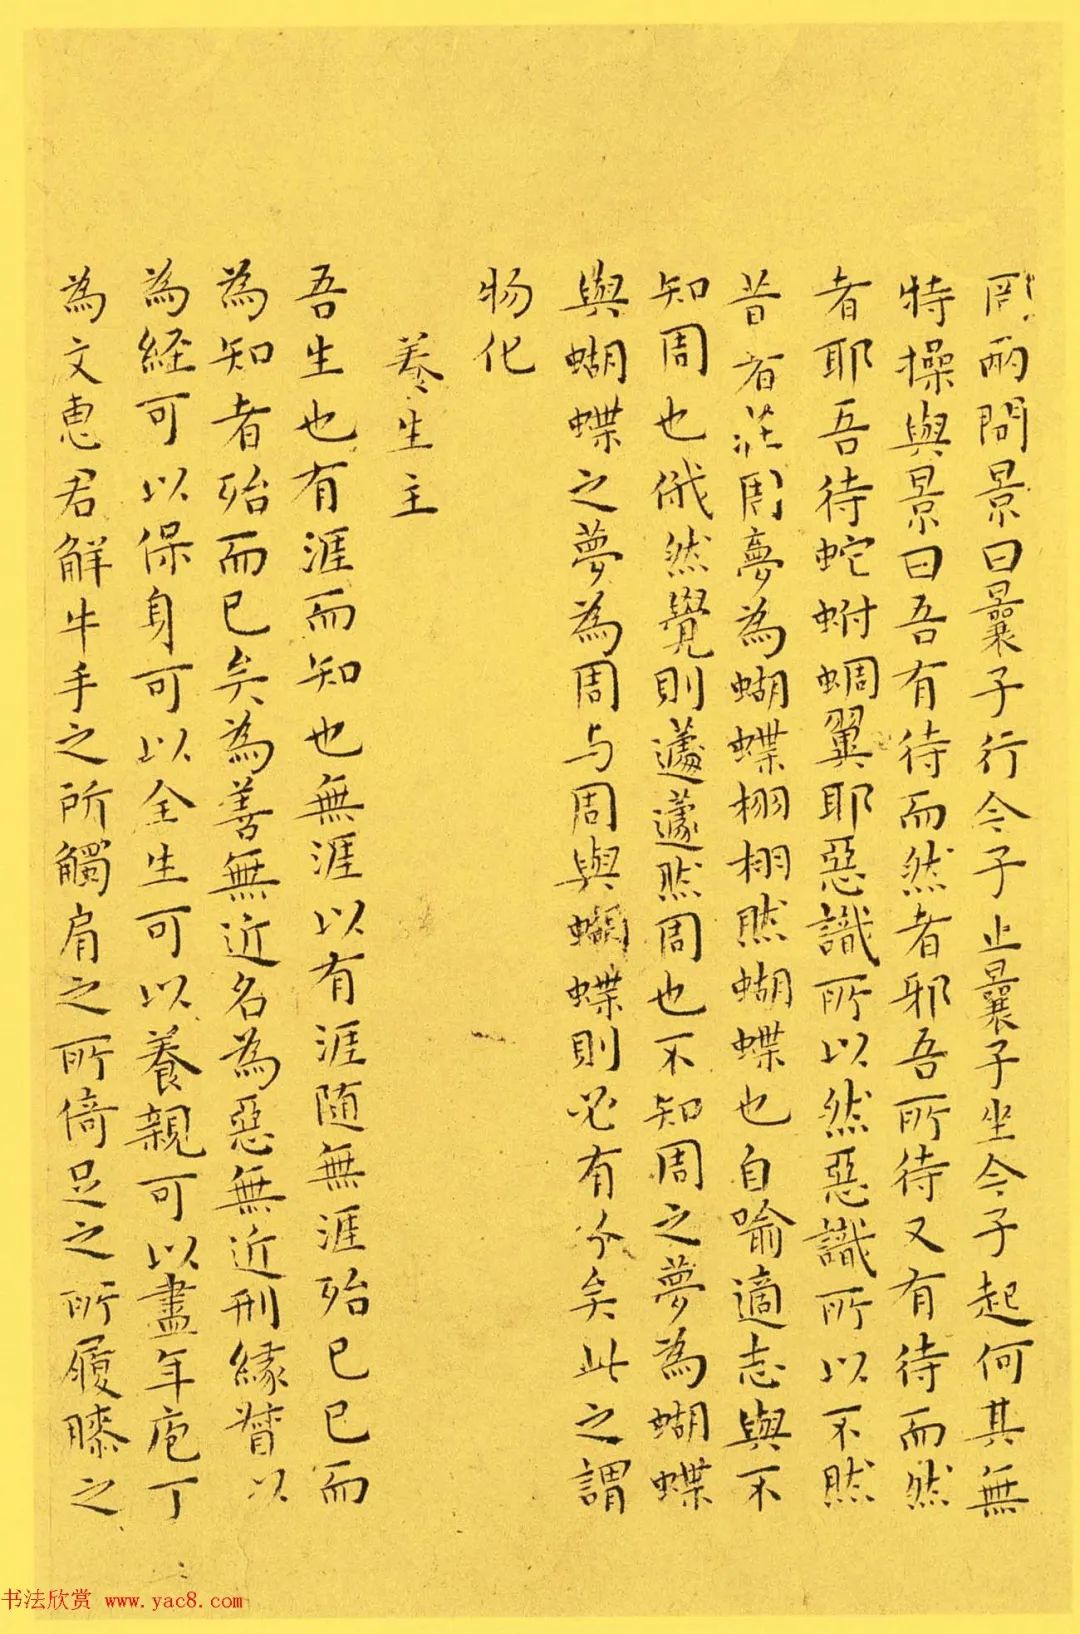 罔兩問景曰曩子行今子止曩子坐今子起何其無
特操與景曰吾有待而然者邪吾所待又有待而然
者耶吾待蛇蚹蜩翼耶惡識所以然惡識所以不然
昔者莊周夢為蝴蝶栩栩然蝴蝶也自喻適志與不
知周也俄然覺則蘧蘧然周也不知周之夢為蝴蝶
與蝴蝶之夢為周与周與蝴蝶則必有分矣此之謂
物化
養生主
吾生也有涯而知也無涯以有涯随無涯殆已已而
為知者殆而已矣為善無近名為惡無近刑緣督以
為経可以保身可以全生可以養親可以盡年庖丁
為文惠君解牛手之所觸肩之所倚足之所履膝之
书法欣赏 www.yac8.com